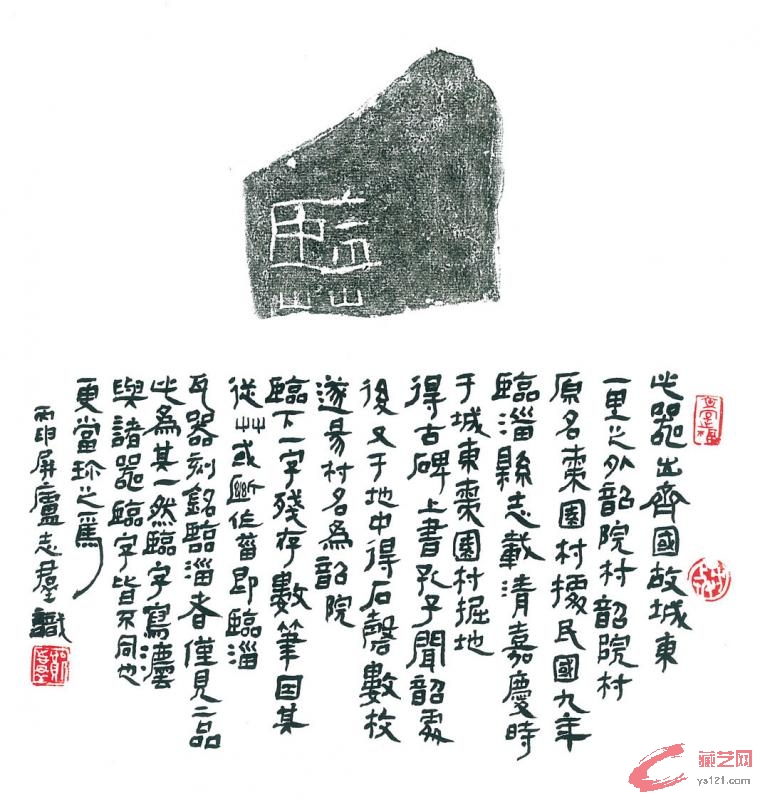 臨
此器出齊國故城東
一里之外韶院村韶院村
原名棗園村據民國九年
臨淄縣志載清嘉慶時
于城東棗園村掘地
得古碑上書孔子聞韶處
後又于地中得石磬數枚
遂易村名為韶院
臨下一字殘存數筆因其
從艸或斷作菑即臨淄
瓦器刻銘臨淄者僅見二品
此為其一然臨字寫灋
與諸器臨字皆不同也
更當珍之焉
丙申屏廬志群識
藏艺网
ys121.com